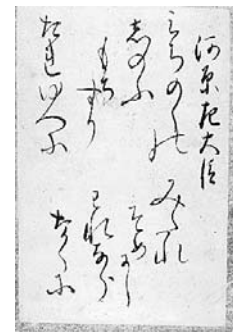 河原左大臣
みちのくの
志のふ
もちすり
たれゆへに
みたれ
そめにし
われなら
なくに